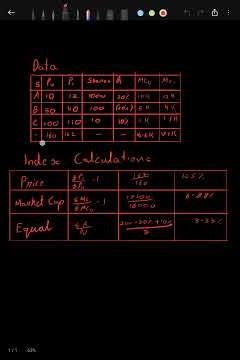 Data
S P₀ P₁ Shares R MC₀ MC₁
A 10 12 1000 20% 10K 12K
B 50 40 100 (20%) 5K 4K
C 100 110 10 10% 1K 1.1K
- 160 162 - -
Index Calculations
Price ΣP₁/ΣP₀ - 1 162/160 1.25%
Market Cap ΣMC₁/ΣMC₀ - 1
Equal 20% - 20% + 10% / 3 3.33%
1 / 1